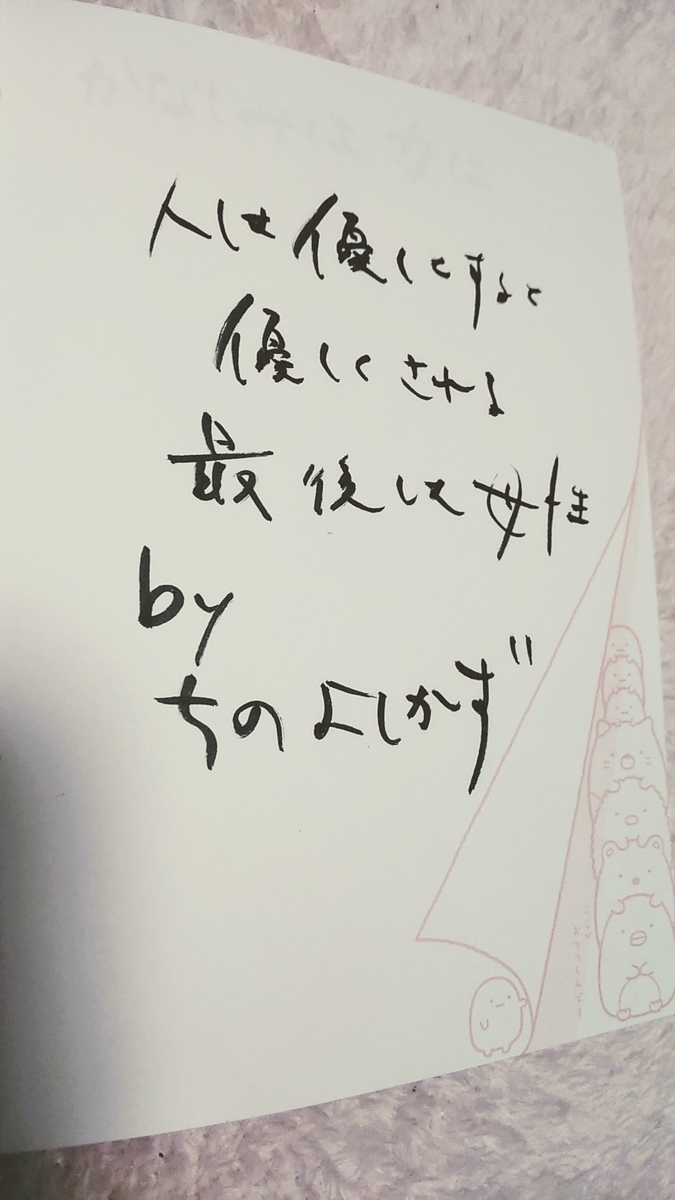 人は優しくすると
優しくされる
最後は母性
by
ちのよしかず